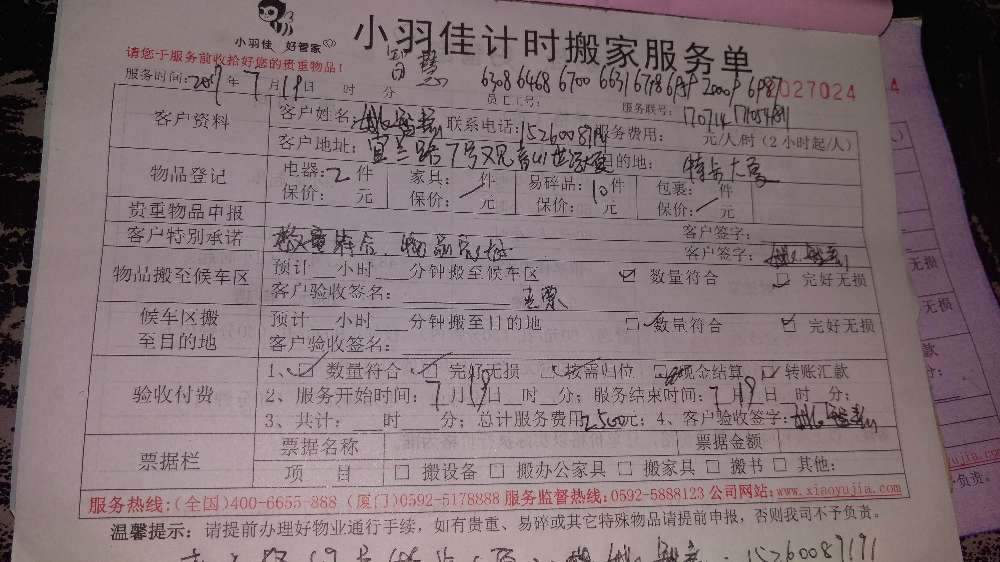 小羽佳 好管家
小羽佳计时搬家服务单
请您于服务前收拾好您的贵重物品！
智慧
6308 6468 6700 6631 6798
2027024
服务时间: 2017年7月19日 时 分 员工工号: 服务联号:
客户资料
客户姓名: 联系电话: 服务费用: 元/人/时 (2小时起/人)
客户地址: 宜兰路7号 目的地: 特步大厦
物品登记
电器: 2件 家具: 件 易碎品: 10件 包裹: 件
保价: 元 保价: 元 保价: 元 保价: 元
贵重物品申报 客户签字:
客户特别承诺 数量符合 物品完好 客户签字:
物品搬至候车区
预计__小时___分钟搬至候车区 数量符合 完好无损
客户验收签名:
候车区搬至目的地
预计__小时___分钟搬至目的地 数量符合 完好无损
客户验收签名:
验收付费
1、数量符合 完好无损 按需归位 现金结算 转账汇款
2、服务开始时间: 7月19日__时__分; 服务结束时间: 7月19日__时__分;
3、共计:____时____分; 总计服务费用2500元; 4、客户验收签字:
票据栏
票据名称 票据金额
项 目 搬设备 搬办公家具 搬家具 搬书 其他:
服务热线: (全国)400-6655-868 (厦门)0592-5178888 服务监督热线: 0592-5888123 公司网站: www.xiaoyujia.com
温馨提示: 请提前办理好物业通行手续，如有贵重、易碎或其它特殊物品请提前申报，否则我司不予负责。
15260089191